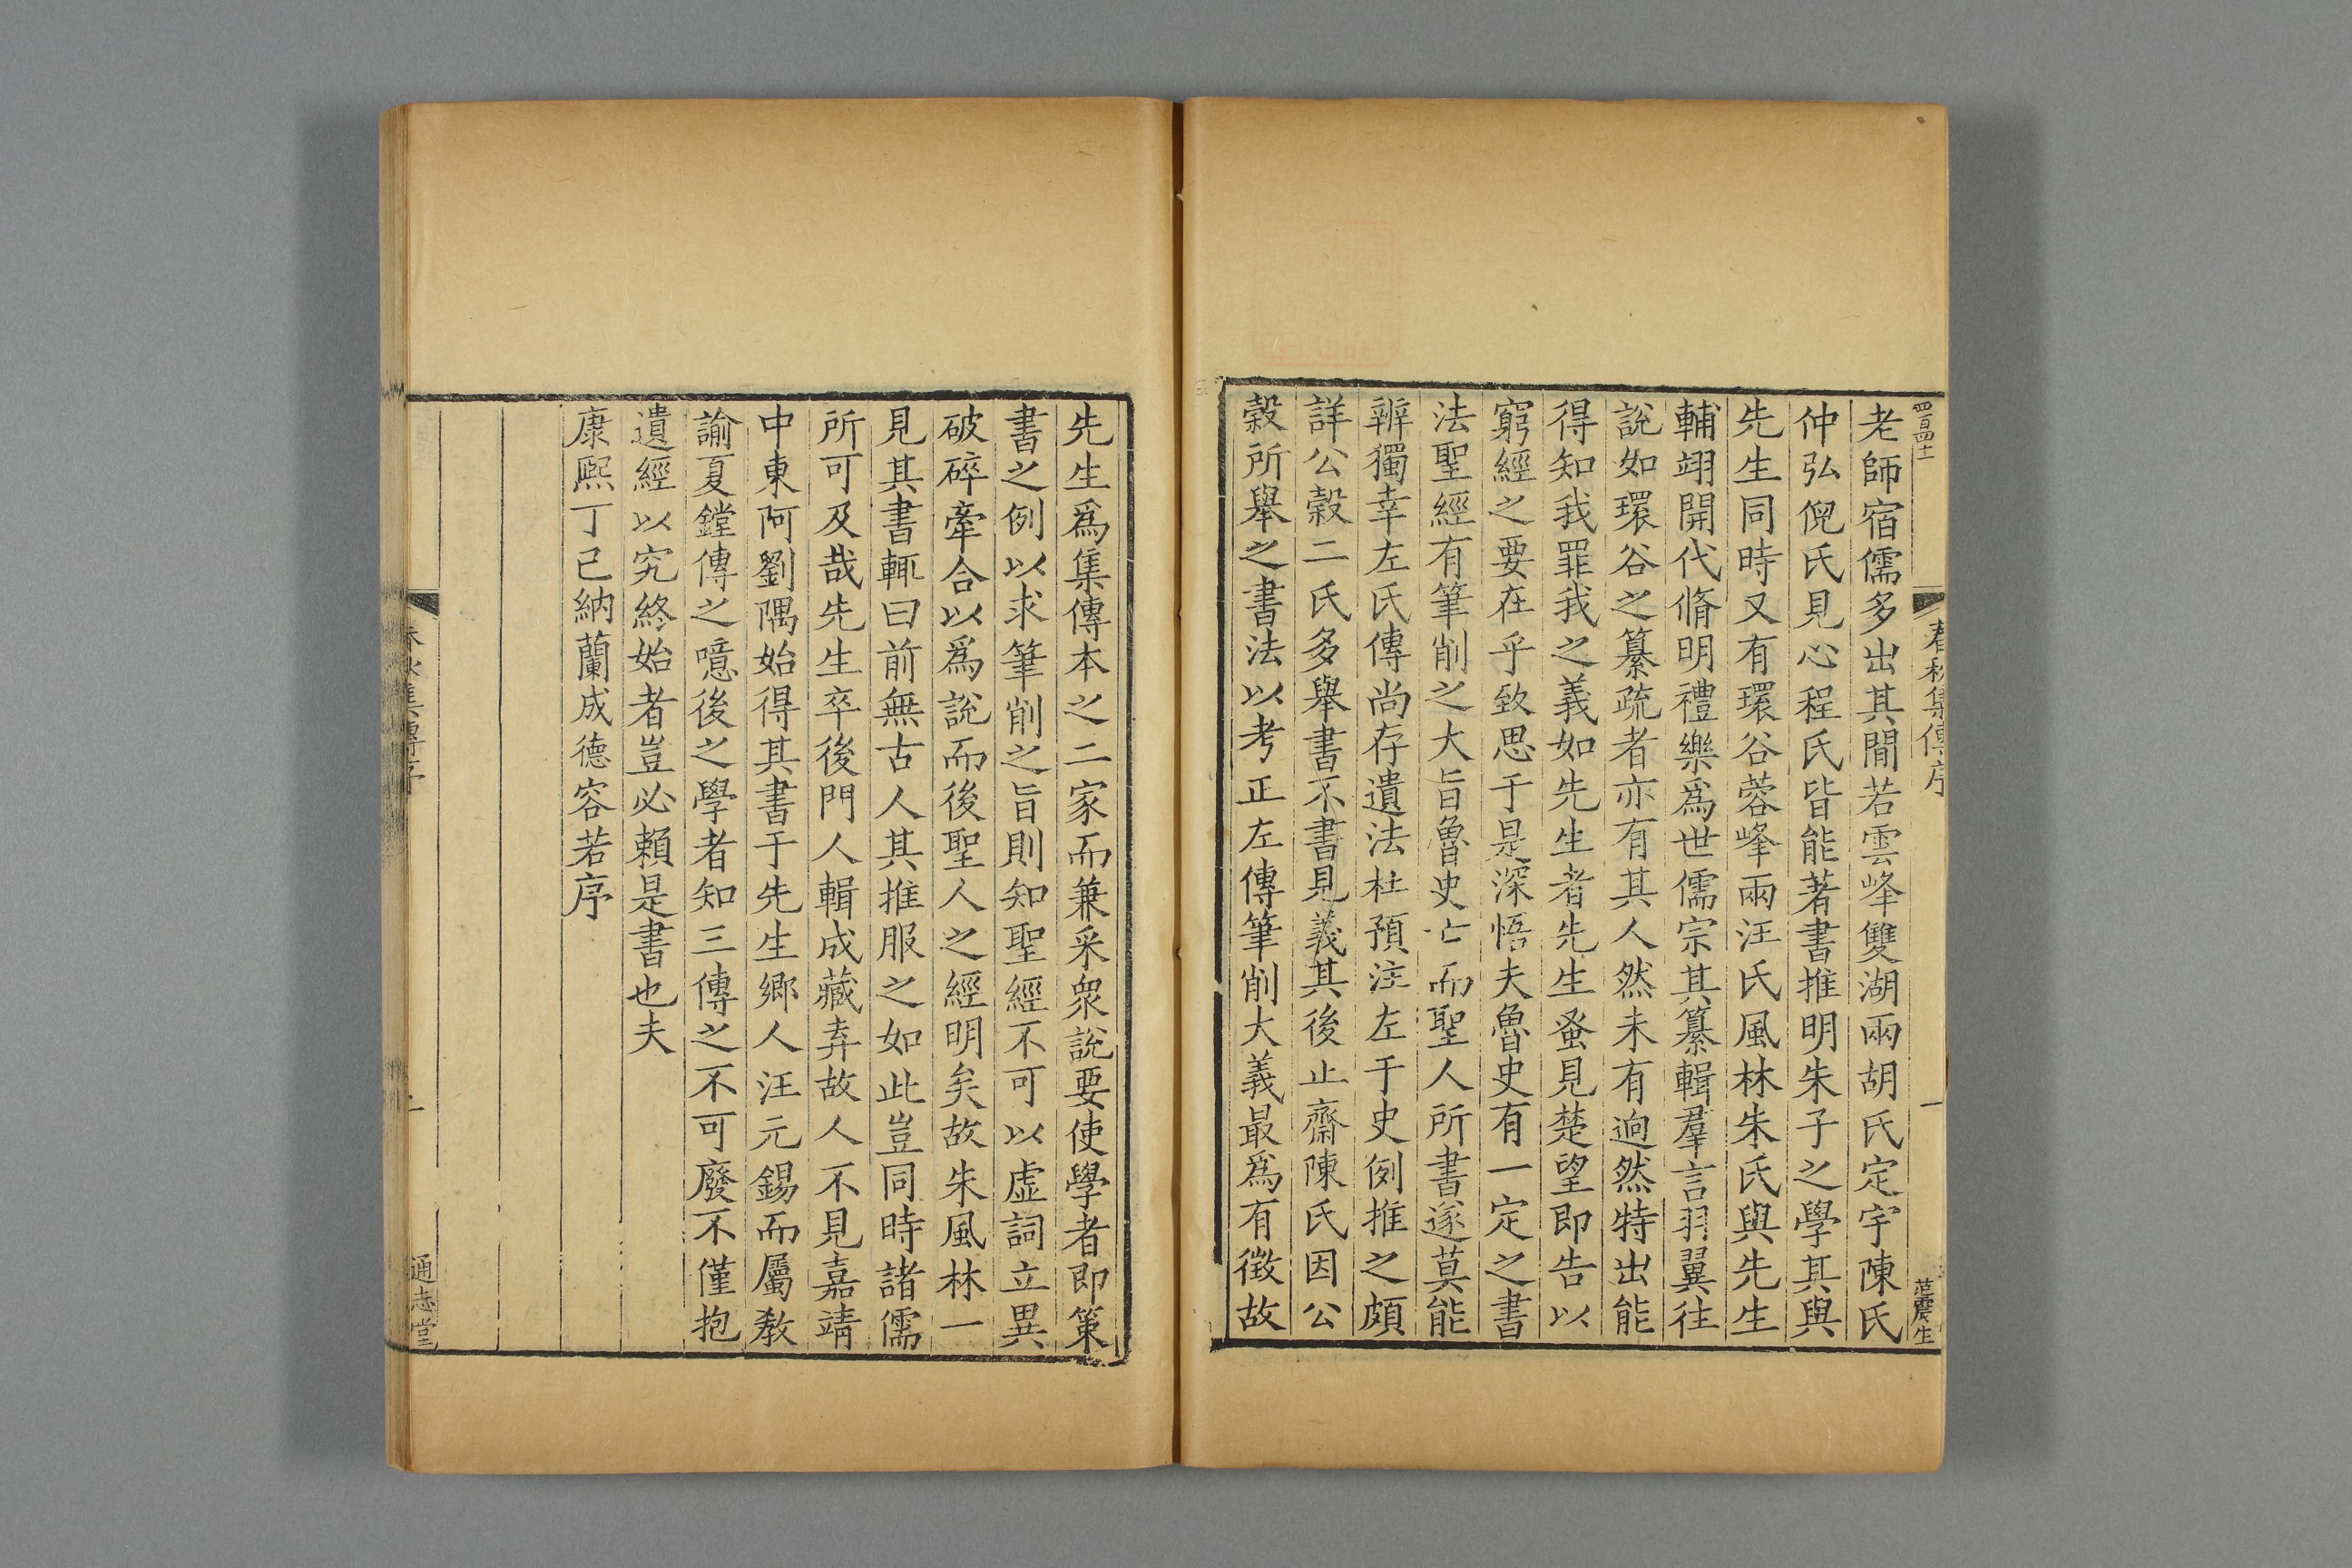 四百四十
春秋集傳序
一
范震生
老師宿儒多出其間若雲峰雙湖兩胡氏定宇陳氏
仲弘倪氏見心程氏皆能著書推明朱子之學其與
先生同時又有環谷蓉峰兩汪氏風林朱氏與先生
輔翊開代脩明禮樂爲世儒宗其纂輯羣言羽翼往
說如環谷之纂疏者亦有其人然未有逈然特出能
得知我罪我之義如先生者先生蚤見楚望即告以
窮經之要在乎致思于是深悟夫魯史有一定之書
法聖經有筆削之大旨魯史亡而聖人所書遂莫能
辨獨幸左氏傳尚存遺法杜預注左于史例推之頗
詳公穀二氏多舉書不書見義其後止齋陳氏因公
穀所舉之書法以考正左傳筆削大義最爲有徵故
先生爲集傳本之二家而兼采衆說要使學者即策
書之例以求筆削之旨則知聖經不可以虛詞立異
破碎牽合以爲說而後聖人之經明矣故朱風林一
見其書輒曰前無古人其推服之如此豈同時諸儒
所可及哉先生卒後門人輯成藏弆故人不見嘉靖
中東阿劉隅始得其書于先生鄉人汪元錫而屬教
諭夏鏜傳之噫後之學者知三傳之不可廢不僅抱
遺經以究終始者豈必賴是書也夫
康熙丁巳納蘭成德容若序
春秋集傳序
通志堂